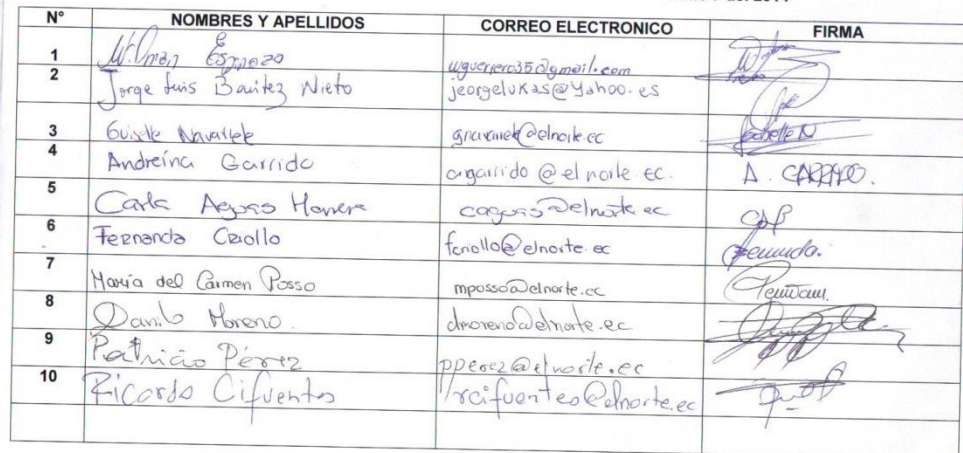 del 2011
N° NOMBRES Y APELLIDOS CORREO ELECTRONICO FIRMA
1 Wilman Espinoza wguerrero35@gmail.com
2 Jorge Luis Benítez Nieto jeorgelukas@yahoo.es
3 Guiselle Navarrete @elnorte.ec
4 Andreína Garrido agarrido@elnorte.ec. A. GARRIDO.
5 Carla Aguas Herrera caguas@elnorte.ec
6 Fernanda Criollo fcriollo@elnorte.ec
7 María del Carmen Posso mposso@elnorte.ec
8 Danilo Moreno. dmoreno@elnorte.ec
9 Patricio Pérez pperez@elnorte.ec
10 Ricardo Cifuentes rcifuentes@elnorte.ec